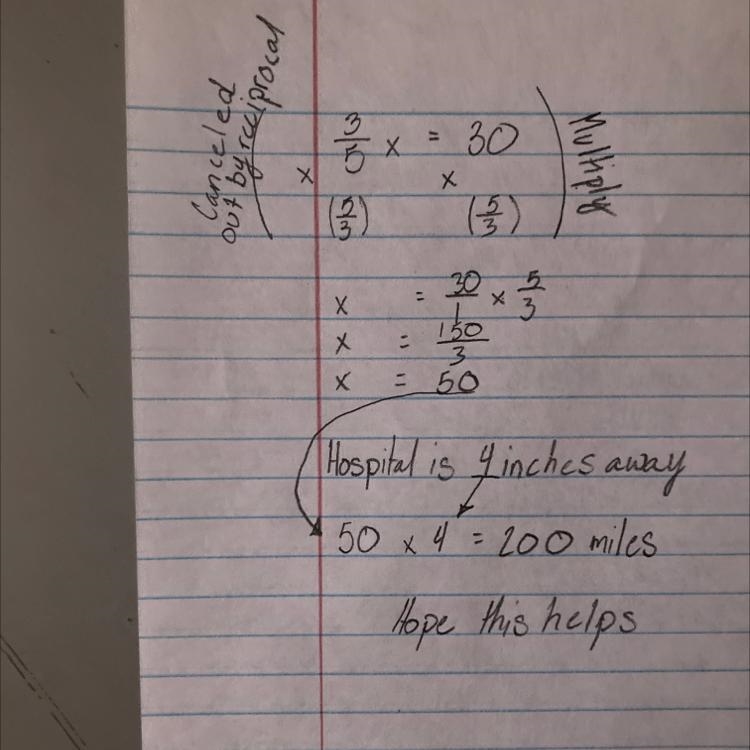 Canceled
out by reciprocal
3/5 x = 30
x x
(5/3) (5/3)
Multiply
x = 30/1 x 5/3
x = 150/3
x = 50
Hospital is 4 inches away
50 x 4 = 200 miles
Hope this helps